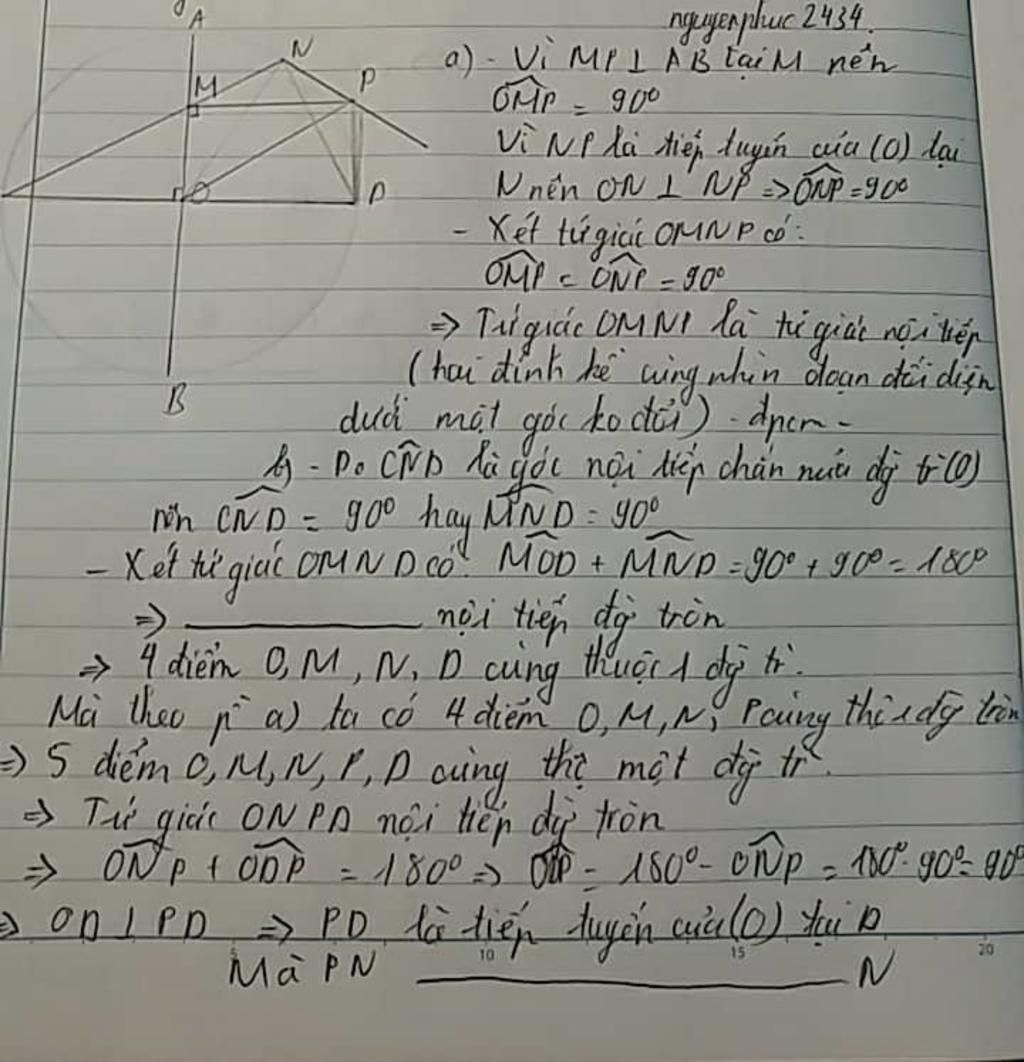 nguyenphuc2434.
A
N
M
P
O
D
B
a) - Vì MP ⊥ AB tại M nên
OMP = 90°
Vì NP là tiếp tuyến của (O) tại
N nên ON ⊥ NP => ONP = 90°
- Xét tứ giác OMNP có:
OMP = ONP = 90°
=> Tứ giác OMNP là tứ giác nội tiếp
(hai đỉnh kề cùng nhìn đoạn đối diện
dưới một góc ko đổi) - đpcm -
b) - Do CND là góc nội tiếp chắn nửa đg tr (O)
nên CND = 90° hay MND = 90°
- Xét tứ giác OMND có: MOD + MND = 90° + 90° = 180°
=> ________ nội tiếp đg tròn
=> 4 điểm O, M, N, D cùng thuộc 1 đg tr.
Mà theo p a) ta có 4 điểm O, M, N, P cùng th 1 đg tròn
=> 5 điểm O, M, N, P, D cùng th một đg tr.
=> Tứ giác ONPD nội tiếp đg tròn
=> ONP + ODP = 180° => = 180° - ONP = 180° - 90° = 90°
=> OD ⊥ PD => PD là tiếp tuyến của (O) tại D
5 10 15 20
Mà PN ________ N